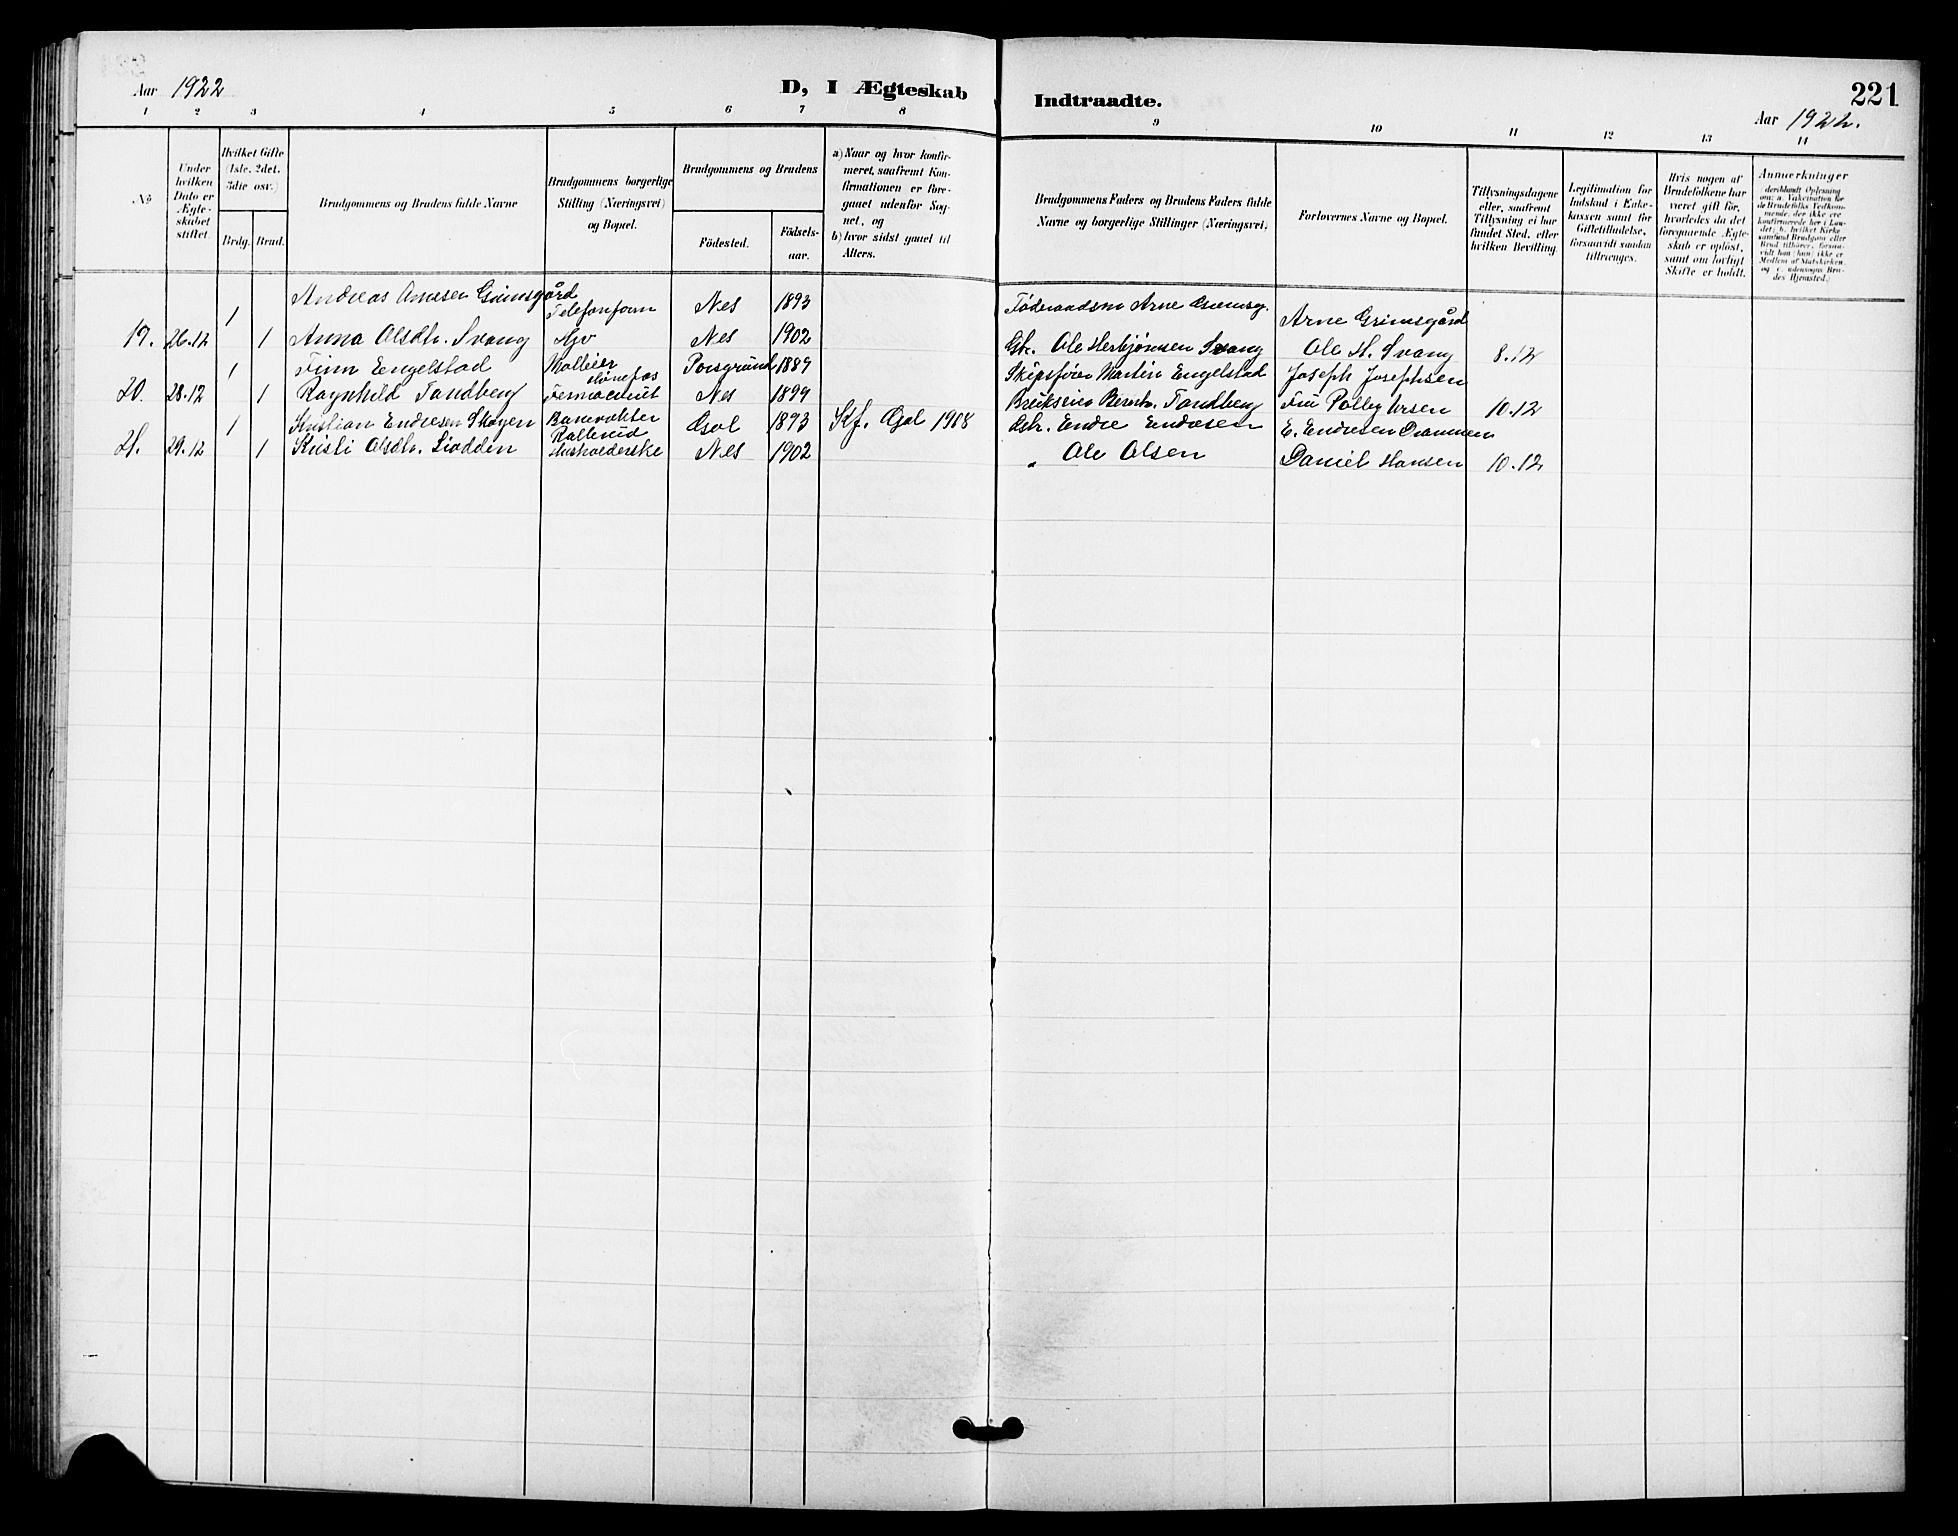 Aar 1922
D, I Ægteskab
Indtraadte.
221
Aar 1922.
1 2 3 4 5 6 7 8 9 10 11 12 13 14
No
Under hvilken Dato er Ægteskabet stiftet.
Hvilket Gifte (1ste. 2det. 3die osv.)
Brdg.
Brud.
Brudgommens og Brudens fulde Navne
Brudgommens borgerlige Stilling (Næringsvei) og Bopæl.
Brudgommens og Brudens
Fødested.
Fødselsaar.
a) Naar og hvor konfirmeret, saafremt Konfirmationen er foregaaet udenfor Sognet, og
b) hvor sidst gaaet til Alters.
Brudgommens Faders og Brudens Faders fulde Navne og borgerlige Stillinger (Næringsvei).
Forlovernes Navne og Bopæl.
Tillysningsdagene eller, saafremt Tillysning ei har fundet Sted, efter hvilken Bevilling.
Legitimation for Indskud i Enkekassen samt for Giftetilladelse, forsaavidt saadan tiltrænges.
Hvis nogen af Brudefolkene har været gift før, hvorledes da det foregaaende Ægteskab er opløst, samt om lovligt Skifte er holdt.
Anmærkninger
deriblandt Oplysning om: a. Vakcination for de Brudefolks Vedkommende, der ikke ere konfirmerede her i Landet; b. hvilket Kirkesamfund Brudgom eller Brud tilhører, forsaavidt han (hun) ikke er Medlem af Statskirken, og c. udensogns Brudes Hjemsted.
1 Andreas Arnesen Grimsgård Telefonform Nes 1893 Føderaadsm Arne Grimsg. Arne Grimsgård
19. 26.12 1 Anna Olsdtr. Svang Nes 1902 Gbr. Ole Herbjørnsen Svang Ole H. Svang 8.12
1 Finn Engelstad Hønefos Porsgrund 1889 Skipsfører Martin Engelstad Joseph Josephsen
20. 28.12 1 Ragnhild Tandberg Nes 1899 Tandberg 10.12
1 Kristian Endresen Skøyen Banevokter Gol 1893 Kf. Gol 1908 Gbr. Endre Endresen E. Endresen Drammen
21. 29.12 1 Kristi Olsdtr. Liodden Husholderske Nes 1902 " Ole Olsen Daniel Hansen 10.12